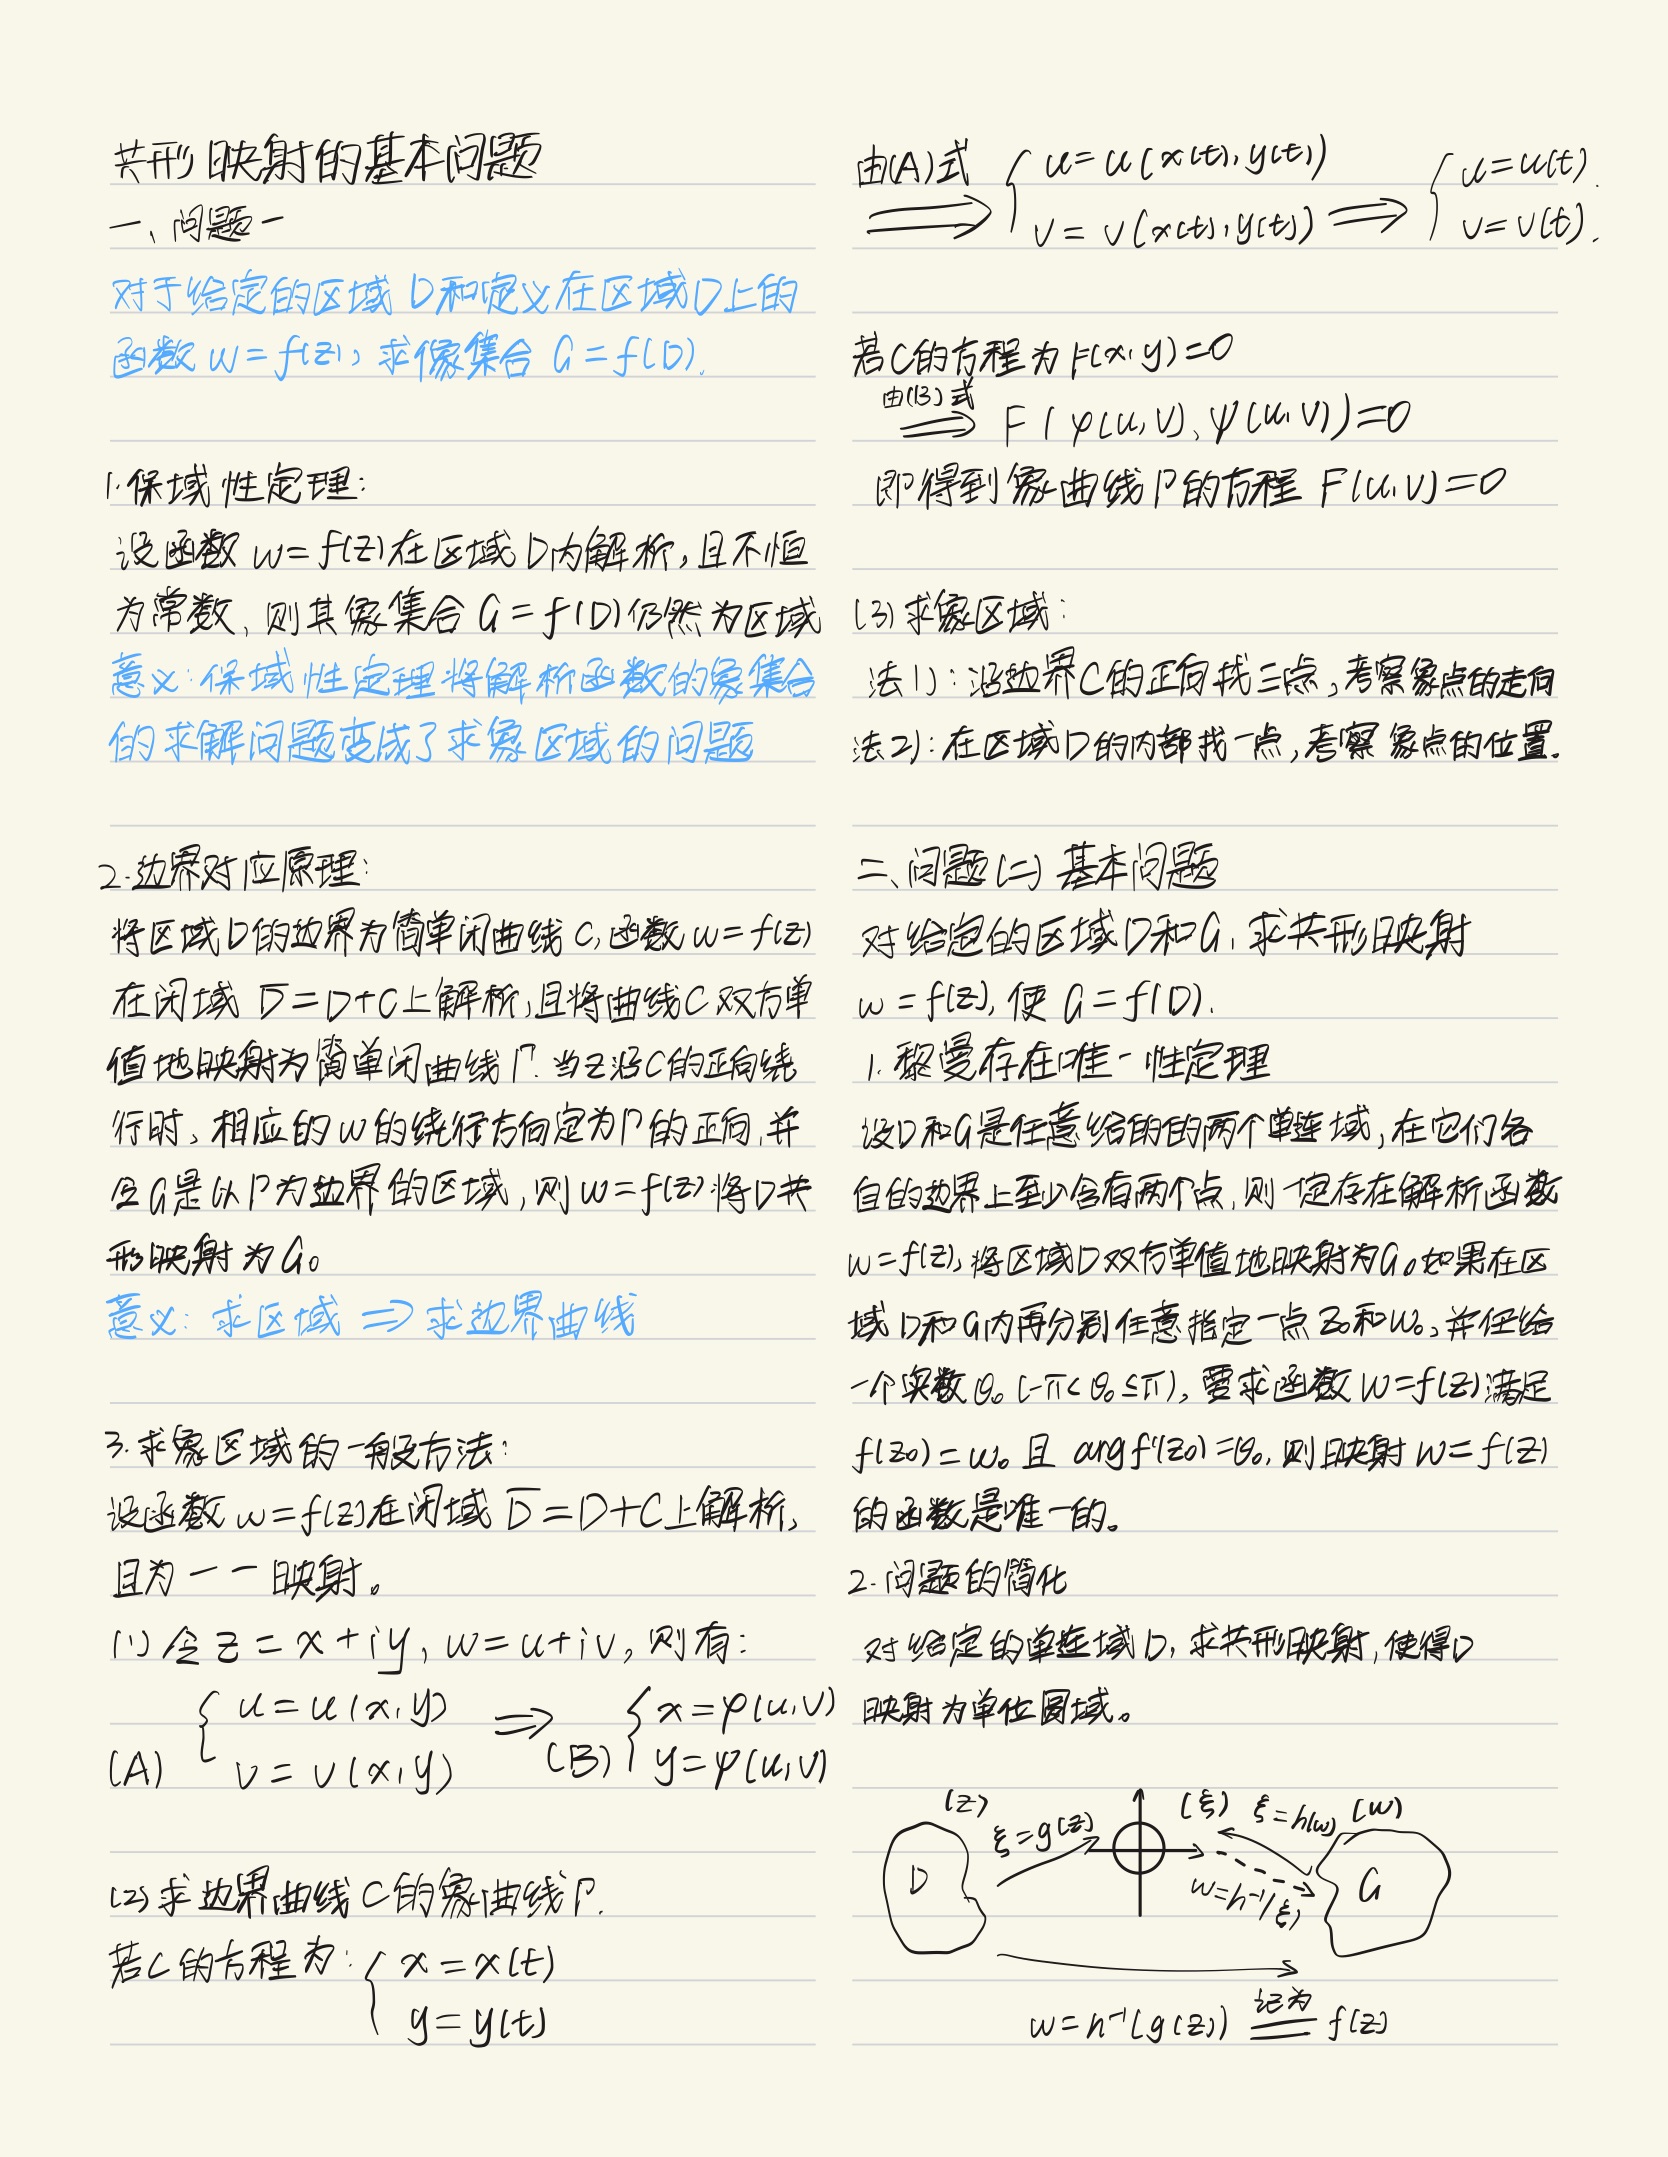 共形映射的基本问题
一、问题一
对于给定的区域D和定义在区域D上的
函数w=f(z),求像集合G=f(D).
1.保域性定理:
设函数w=f(z)在区域D内解析,且不恒
为常数,则其象集合G=f(D)仍然为区域
意义:保域性定理将解析函数的象集合
的求解问题变成了求象区域的问题
2.边界对应原理:
将区域D的边界为简单闭曲线C,函数w=f(z)
在闭域D̅=D+C上解析,且将曲线C双方单
值地映射为简单闭曲线Γ.当z沿C的正向绕
行时,相应的w的绕行方向定为Γ的正向,并
令G是以Γ为边界的区域,则w=f(z)将D共
形映射为G。
意义:求区域⇒求边界曲线
3.求象区域的一般方法:
设函数w=f(z)在闭域D̅=D+C上解析,
且为一一映射。
(1)令z=x+iy,w=u+iv,则有:
(A) { u=u(x,y) ⇒ (B) { x=φ(u,v)
v=v(x,y) y=ψ(u,v)
(2)求边界曲线C的象曲线Γ.
若C的方程为: { x=x(t)
y=y(t)
由(A)式 ⇒ { u=u(x(t),y(t)) ⇒ { u=u(t).
v=v(x(t),y(t)) v=v(t).
若C的方程为F(x,y)=0
由(B)式 ⇒ F(φ(u,v),ψ(u,v))=0
即得到象曲线Γ的方程F(u,v)=0
(3)求象区域:
法1):沿边界C的正向找三点,考察象点的走向
法2):在区域D的内部找一点,考察象点的位置.
二、问题(二)基本问题
对给定的区域D和G,求共形映射
w=f(z),使G=f(D).
1.黎曼存在唯一性定理
设D和G是任意给的的两个单连域,在它们各
自的边界上至少含有两个点,则一定存在解析函数
w=f(z),将区域D双方单值地映射为G。如果在区
域D和G内再分别任意指定一点z₀和w₀,并任给
一个实数θ₀(-π<θ₀≤π),要求函数w=f(z)满足
f(z₀)=w₀且arg f'(z₀)=θ₀,则映射w=f(z)
的函数是唯一的。
2.问题的简化
对给定的单连域D,求共形映射,使得D
映射为单位圆域。
(z) (ξ) (w)
ξ=g(z) ξ=h(w)
D w=h⁻¹(ξ) G
w=h⁻¹(g(z)) 记为 = f(z)